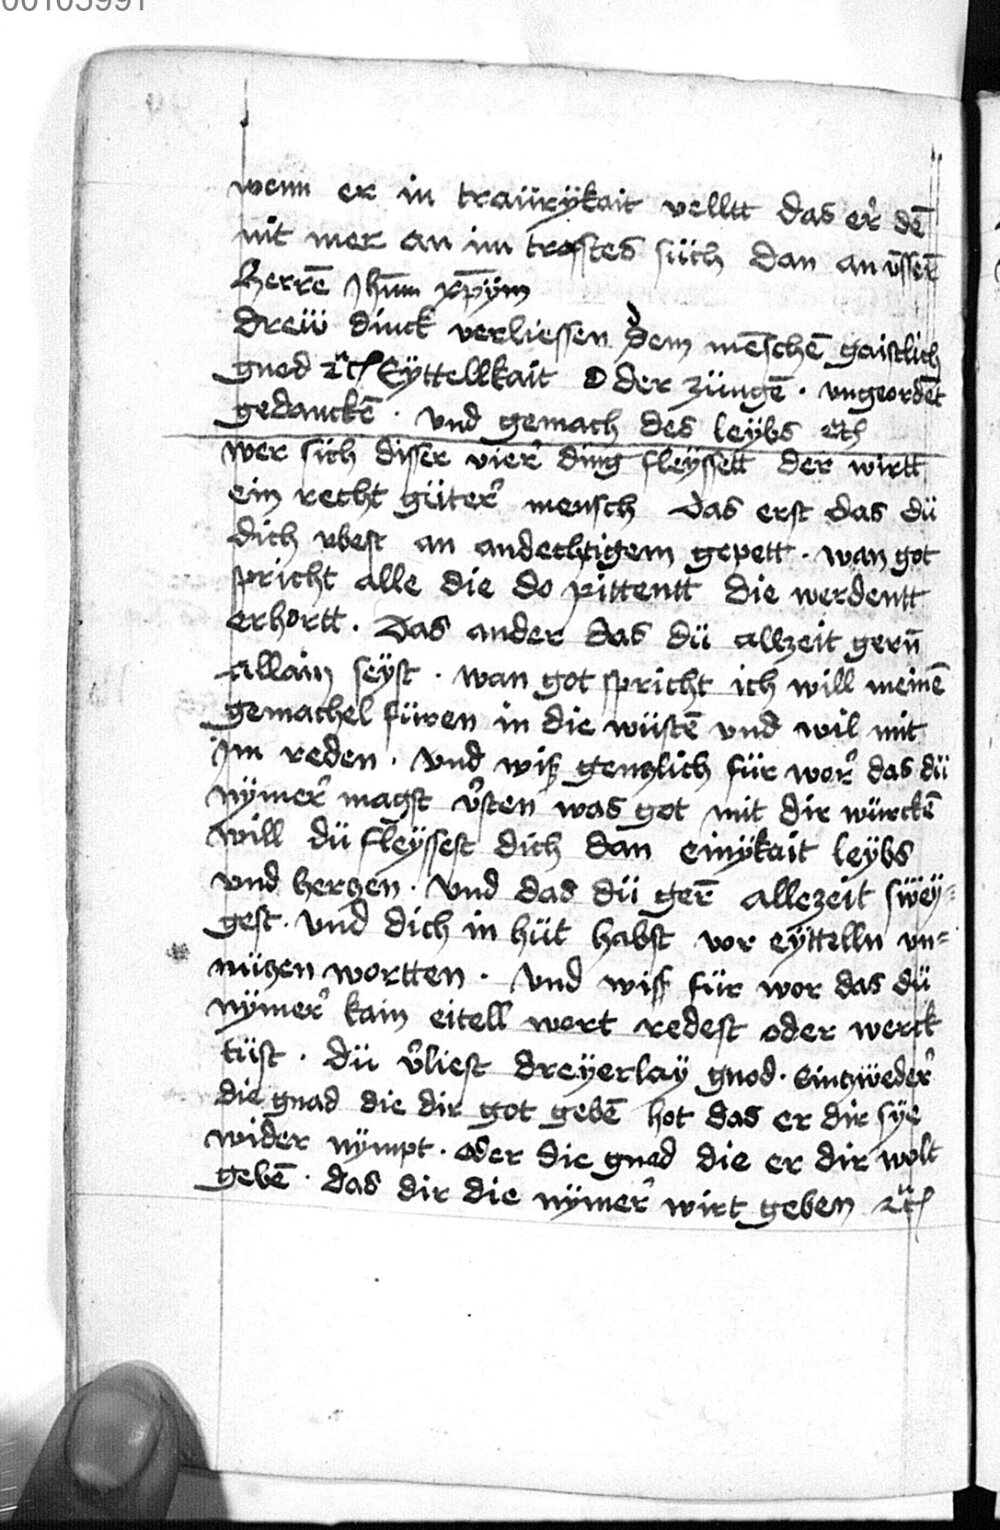 00103991
wenn er in traürÿkait velltt das er dē
nit mer an im trostes süch dan an vnsserē
Herrē Jhm̄ xp̄ym
Dreü dinck verliessen dem mēschē gaistlich
gnod ⁊c̃ Eÿttellkait der züngē · vngeordēt
gedanckē · vnd gemach des leÿbs ⁊c̃
wer sich disser vier ding fleÿssett der wirtt
ein recht güter mensch Das erst das dü
dich vbest an andechtigem gepett · wan got
spricht alle die do pittentt die werdentt
erhortt · Das ander das dü allzeit gern̄
allain seÿst · wan got spricht ich will meinē
gemachel füren in die wüstē vnd wil mit
jm reden · vnd wiß genczlich für wor das dü
nÿmer magst v̉sten was got mit dir würckē
will dü fleÿssest dich dan einÿkait leÿbs
vnd herczen · vnd das dü ger̄ allezeit swëÿ=
gest · vnd dich in hüt habst vor eÿttelln vn=
nüczen wortten · vnd wiss für wor das dü
nÿmer kain eitell wort redest oder werck
tüst · dü v̉liest dreÿerlaÿ gnod · Eintzweder
die gnad die dir got gebē hot das er dir sÿe
wider nÿmpt · oder die gnad die er dir wolt
gebē · das dir die nÿmer wirt geben ⁊c̃